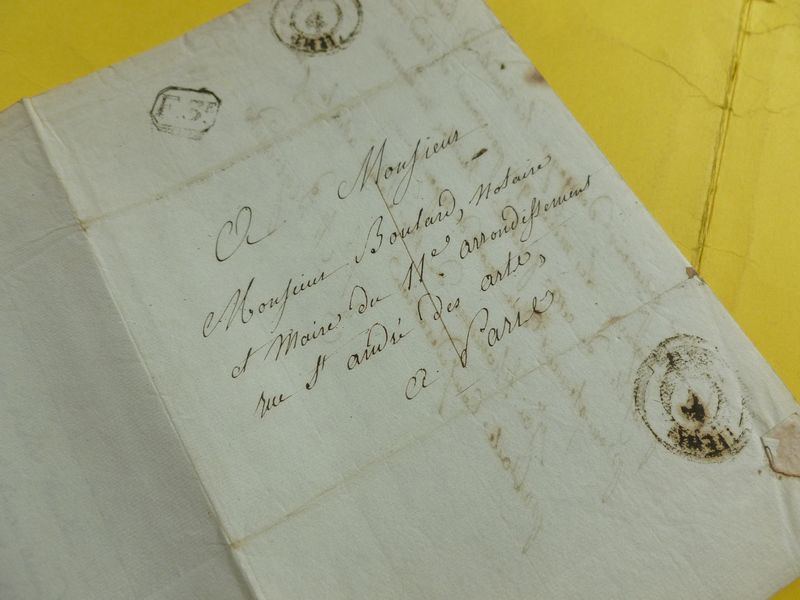 F.3º
A Monsieur
Monsieur Boulard, notaire
et Maire du 11e. arrondissement
rue St andré des arts,
a Paris